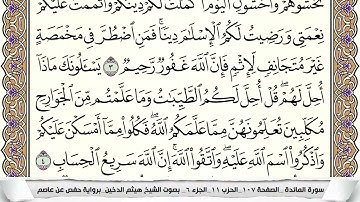 تَخْشَوْهُمْ وَاخْشَوْنِ الْيَوْمَ أَكْمَلْتُ لَكُمْ دِينَكُمْ وَأَتْمَمْتُ عَلَيْكُمْ
نِعْمَتِي وَرَضِيتُ لَكُمُ الْإِسْلَامَ دِينًا فَمَنِ اضْطُرَّ فِي مَخْمَصَةٍ
غَيْرَ مُتَجَانِفٍ لِإِثْمٍ فَإِنَّ اللَّهَ غَفُورٌ رَحِيمٌ ٣ يَسْأَلُونَكَ مَاذَا
أُحِلَّ لَهُمْ قُلْ أُحِلَّ لَكُمُ الطَّيِّبَاتُ وَمَا عَلَّمْتُمْ مِنَ الْجَوَارِحِ
مُكَلِّبِينَ تُعَلِّمُونَهُنَّ مِمَّا عَلَّمَكُمُ اللَّهُ فَكُلُوا مِمَّا أَمْسَكْنَ عَلَيْكُمْ
وَاذْكُرُوا اسْمَ اللَّهِ عَلَيْهِ وَاتَّقُوا اللَّهَ إِنَّ اللَّهَ سَرِيعُ الْحِسَابِ ٤
سورة المائدة . الصفحة ١٠٧ . الحزب ١١ . الجزء ٦ . بصوت الشيخ هيثم الدخين . برواية حفص عن عاصم